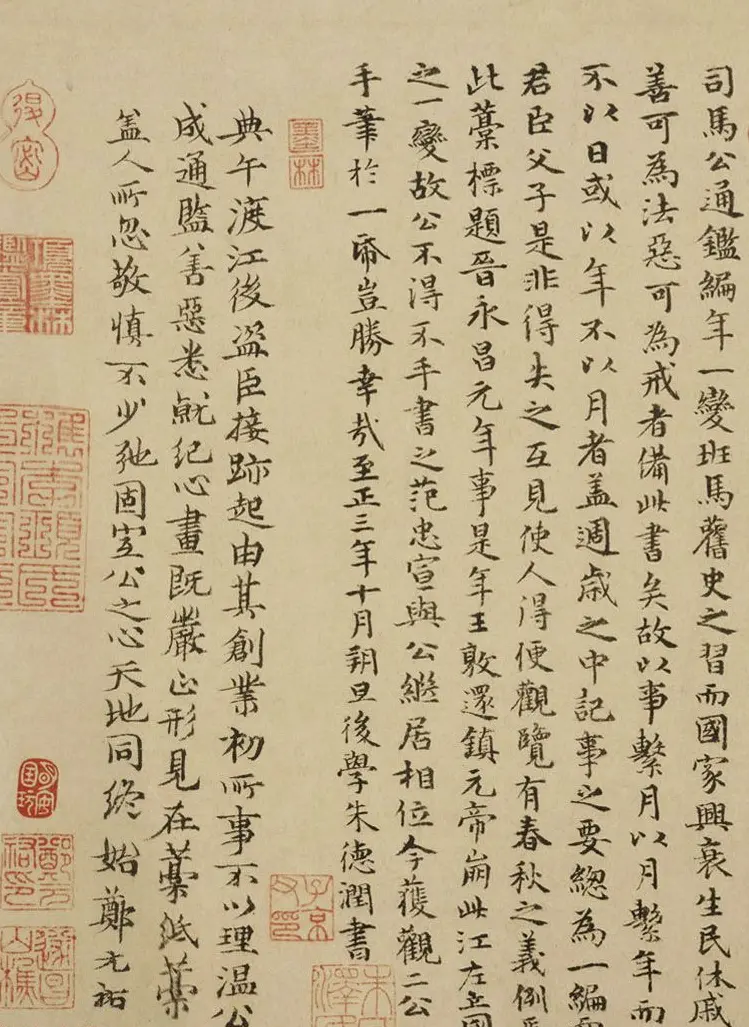 司馬公通鑑編年一變班馬舊史之習而國家興衰生民休戚
善可為法惡可為戒者備此書矣故以事繫月以月繫年而
不以日或以年不以月者盖週歲之中記事之要總為一編
君臣父子是非得失之互見使人得便觀覽有春秋之義例
此藁標題晉永昌元年事是年王敦還鎮元帝崩此江左立國
之一變故公不得不手書之范忠宣與公繼居相位今獲觀二公
手筆於一帋豈勝幸哉至正三年十月朔旦後學朱德潤書
典午渡江後盗臣接跡起由其創業初所事不以理温公
成通監善惡悉就紀心畫既嚴正形見在藁紙藁
盖人所忽敬慎不少弛固宜公之心天地同終始鄭元祐
墨林
子京